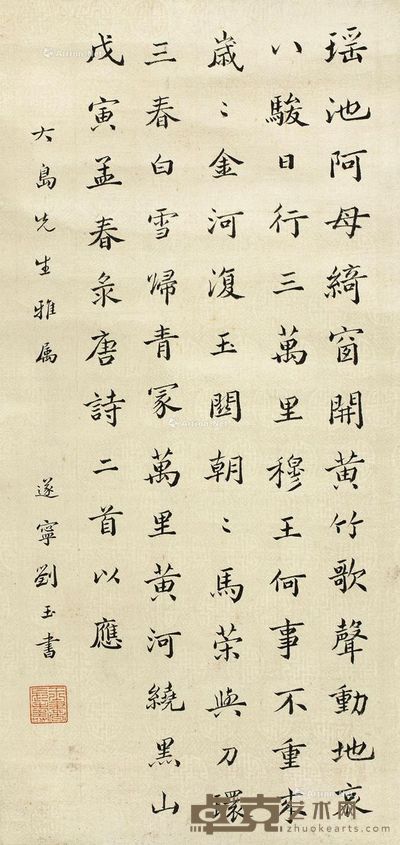 瑶池阿母綺窗開黄竹歌聲動地哀
八駿日行三萬里穆王何事不重來
歳〻金河復玉關朝〻馬策與刀環
三春白雪歸青冢萬里黄河繞黑山
戊寅孟春彔唐詩二首以應
大島先生雅属
遂寧劉玉書
卓克艺术网
zhuokearts.com